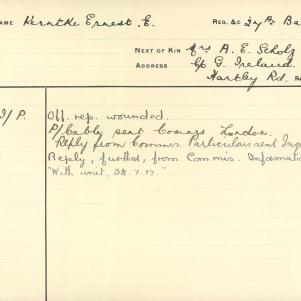 NAME Kerntke Ernest E. REG. &c 24th Ba
NEXT OF KIN Mrs A. E. Scholz
ADDRESS C/o G. Ireland
Hartley Rd.
I/P. Off. rep. wounded.
P/Cable sent Comngs London.
Reply from Commis Particulars sent Inq
Reply, further, from Commis. Informati
"With unit, 24.7.17."